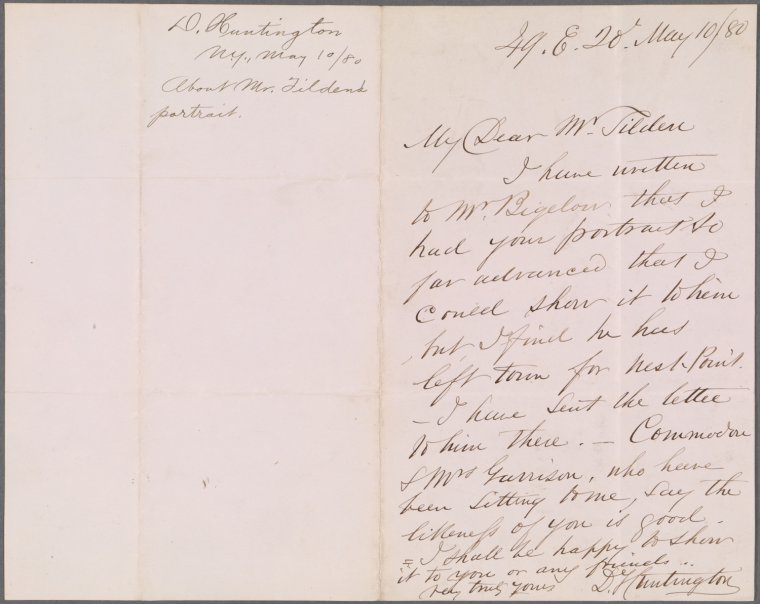 D. Huntington
Ny., May 10/80
About Mr. Tilden's
portrait.
49. E. 20! May 10/80
My Dear Mr. Tilden
I have written
to Mr. Bigelow that I
had your portrait so
far advanced that I
could show it to him
but I find he has
left town for West Point.
- I have sent the letter
to him there. - Commodore
& Mrs Garrison, who have
been sitting to me, say the
likeness of you is good.
= I shall be happy to show
it to you or any friends..
very truly yours D. Huntington